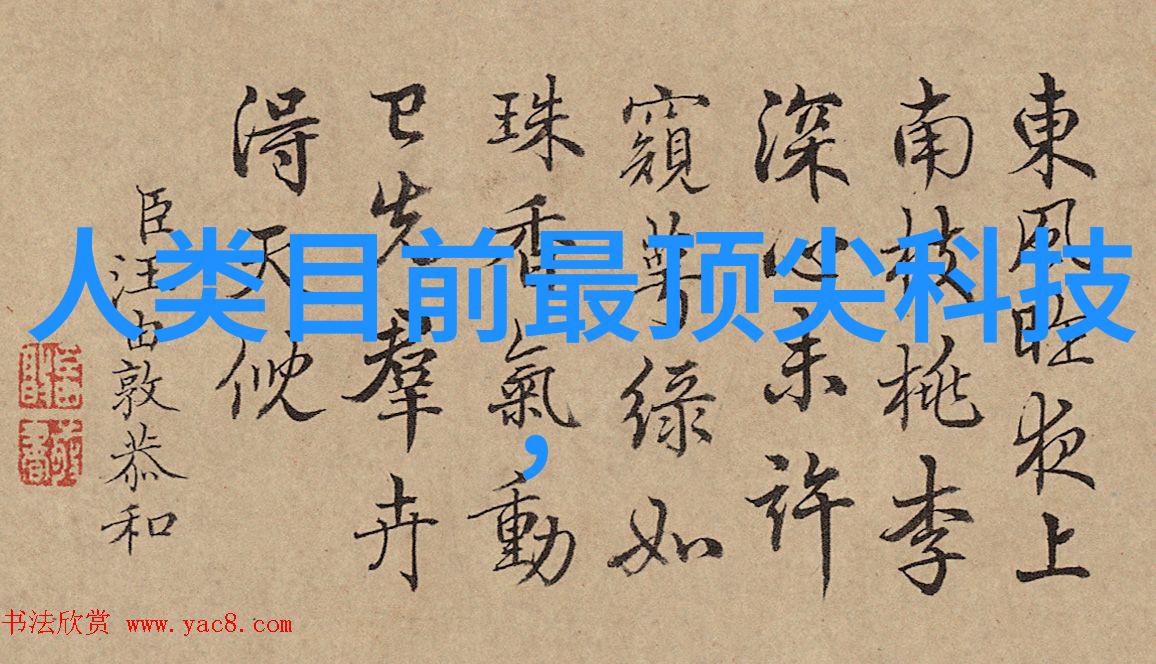 人类目前最顶尖科技
，
東風昨夜上
南枝桃李
深心未許
窺萼綠如
珠香氣動
已先羣卉
得天倪
臣汪由敦恭和
书法欣赏 www.yac8.com